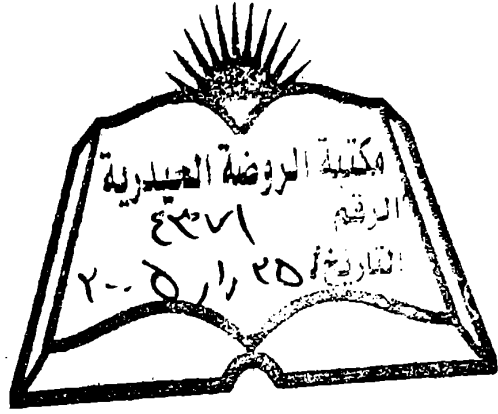 مكتبة الروضة الحيدرية
الرقم
٤٣٠٧١
التاريخ ٢٥ ٢٠٠٥